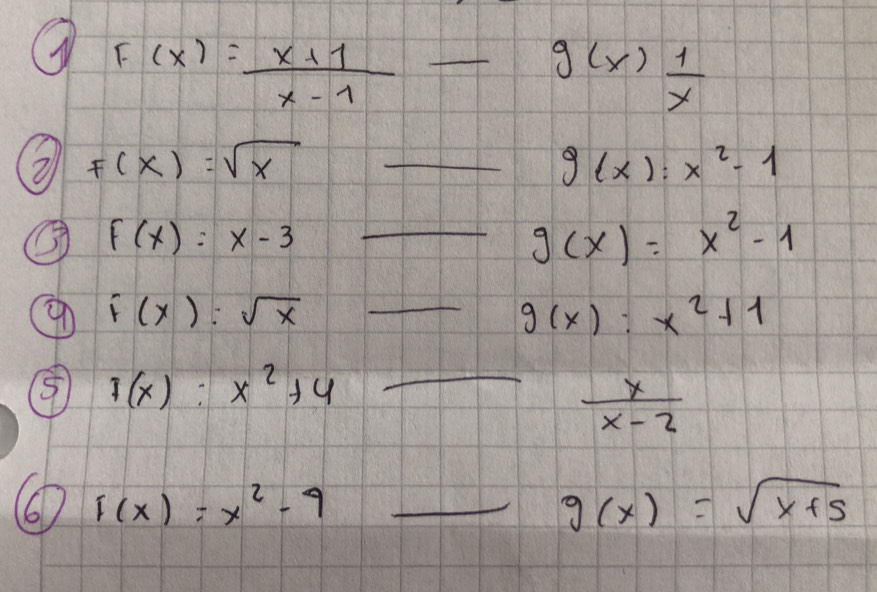 1 F(x) = x+1 / x-1 — g(x) 1/x
2 F(x) = √x — g(x) : x² - 1
3 F(x) : x - 3 — g(x) = x² - 1
4 F(x) : √x — g(x) : x² + 1
5 F(x) : x² + 4 — x / x-2
6 F(x) = x² - 9 — g(x) = √x+5